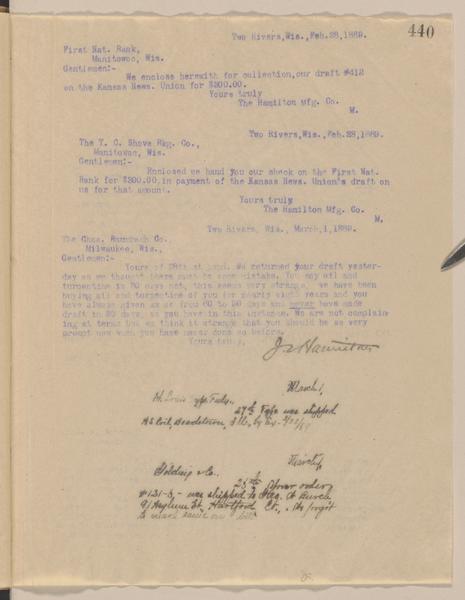 440
Two Rivers, Wis., Feb. 28, 1889.
First Nat. Bank,
Manitowoc, Wis.
Gentlemen:-
We enclose herewith for collection, our draft #412
on the Kansas News. Union for $200.00.
Yours truly
The Hamilton Mfg. Co.
M.
Two Rivers, Wis., Feb. 28, 1889.
The T. C. Shove Bkg. Co.,
Manitowoc, Wis.
Gentlemen:-
Enclosed we hand you our check on the First Nat.
Bank for $200.00, in payment of the Kansas News. Union's draft on
us for that amount.
Yours truly
The Hamilton Mfg. Co.
M.
Two Rivers, Wis., March, 1, 1889.
The Chas. Baumbach Co.
Milwaukee, Wis.,
Gentlemen:-
Yours of 28th at hand. We returned your draft yester-
day as we thought there must be some mistake. You say oil and
turpentine is 30 days net, this seems very strange, we have been
buying oil and turpentine of you for nearly eight years and you
have always given us from 60 to 90 days and never have made
draft in 30 days, as you have in this instance. We are not complain-
ing at terms but we think it strange that you should be so very
prompt now when you have never done so before.
Yours truly,
J E Hamilton
March 1,
St Louis Type Fndy.
27th Type was shipped
Beardstown, Ills, by Ex.
Golding & Co.
28th Your order
#131-B,- was shipped to Geo. A Burch
91 Asylum St, Hartford Ct.,
to make same on bill